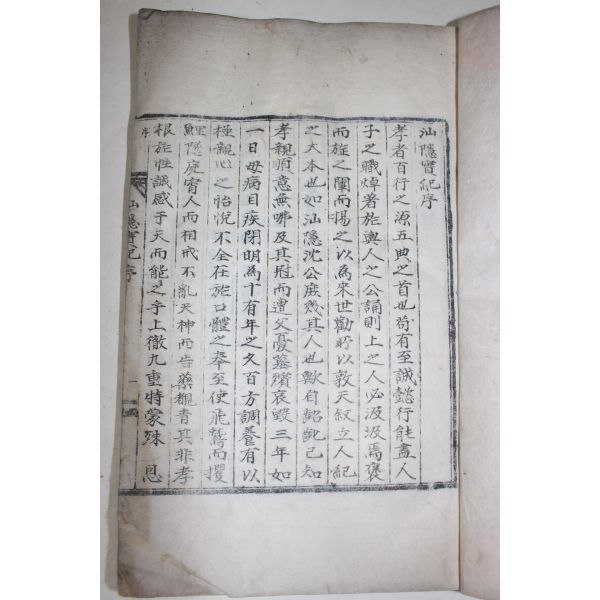 汕隱實紀序
孝者百行之源五典之首也苟有至誠懿行能盡人
子之職焯著於輿人之公誦則上之人必汲汲焉褒
而旌之闡而揚之以為來世勸盼以敦天叙立人紀
之大本也如汕隱沈公庶幾其人也歟自齠齔已知
孝親順意無咈及其冠而遭父憂墓殯哀毀三年如
一日母病目疾閉明為十有年之久百方調養有以
極親心之怡悅不全在於口體之奉至使飛鷲而攫
鯉隱庛實人而相戒不亂天神而告藥櫬青真非孝
根於性誠感于天而能之乎上徹九重特蒙殊 恩
汕隱實紀序
一